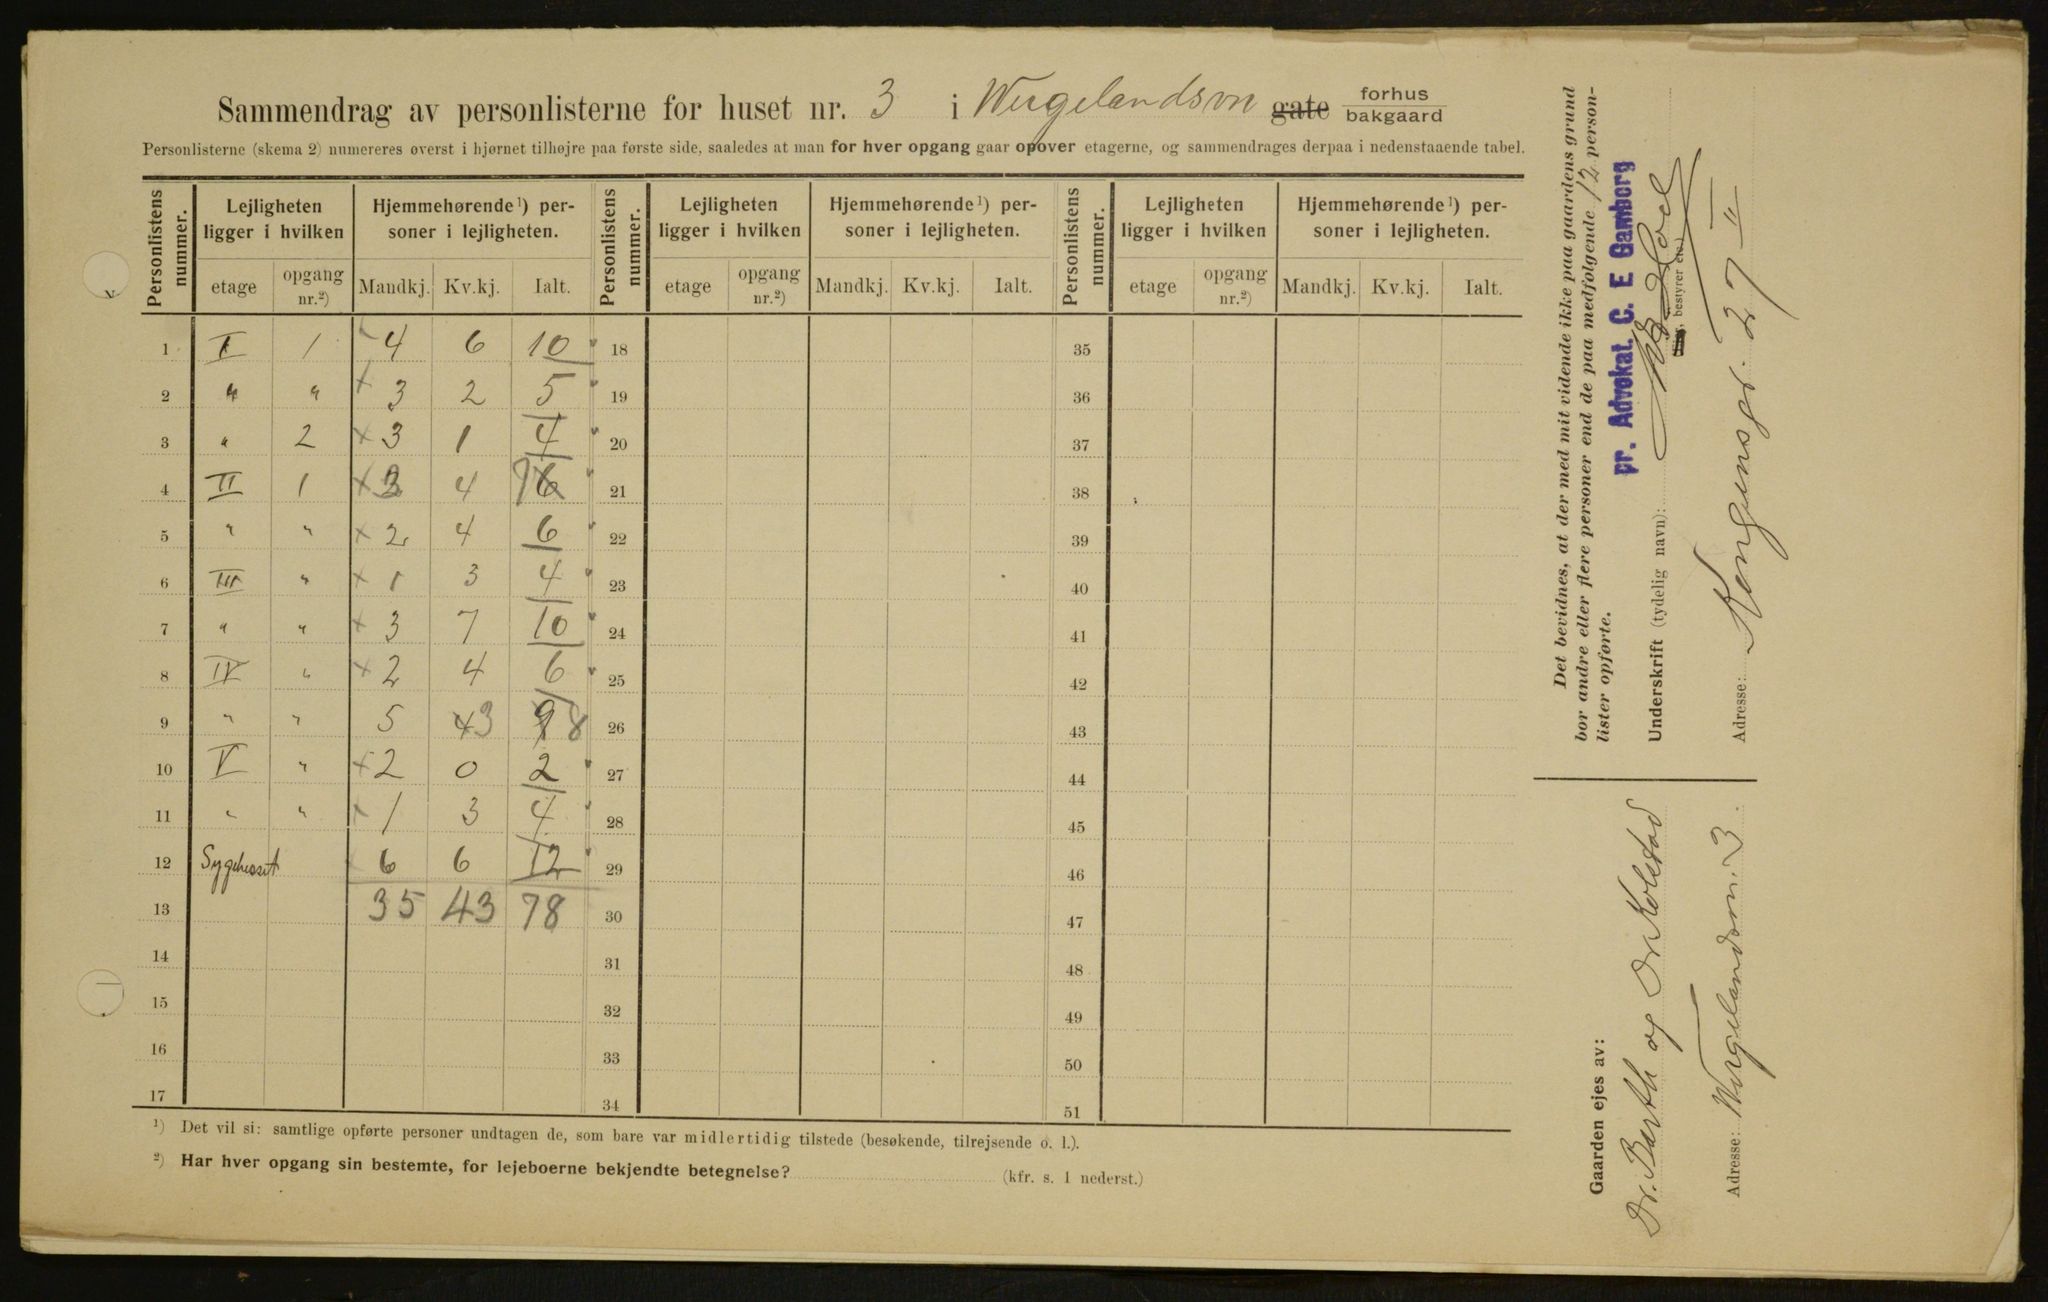 Sammendrag av personlisterne for huset nr. 3 i Wergelandsvn gate forhus bakgaard
Personlisterne (skema 2) numereres øverst i hjørnet tilhøjre paa første side, saaledes at man for hver opgang gaar opover etagerne, og sammendrages derpaa i nedenstaaende tabel.
Personlistens nummer. Lejligheten ligger i hvilken Hjemmehørende ¹) personer i lejligheten. Personlistens nummer. Lejligheten ligger i hvilken Hjemmehørende ¹) personer i lejligheten. Personlistens nummer. Lejligheten ligger i hvilken Hjemmehørende ¹) personer i lejligheten.
etage opgang nr.²) Mandkj. Kv.kj. Ialt. etage opgang nr.²) Mandkj. Kv.kj. Ialt. etage opgang nr.²) Mandkj. Kv.kj. Ialt.
1 I 1 4 6 10 18 35
2 " " 3 2 5 19 36
3 " 2 3 1 4 20 37
4 II 1 3 4 7 6 21 38
5 " " 2 4 6 22 39
6 III " 1 3 4 23 40
7 " " 3 7 10 24 41
8 IV " 2 4 6 25 42
9 " " 5 4 3 9 8 26 43
10 V " 2 0 2 27 44
11 " " 1 3 4 28 45
12 Sygehuset 6 6 12 29 46
13 35 43 78 30 47
14 31 48
15 32 49
16 33 50
17 34 51
¹) Det vil si: samtlige opførte personer undtagen de, som bare var midlertidig tilstede (besøkende, tilrejsende o. l.).
²) Har hver opgang sin bestemte, for lejeboerne bekjendte betegnelse? (kfr. s. 1 nederst.)
Det bevidnes, at der med mit vidende ikke paa gaardens grund
bor andre eller flere personer end de paa medfølgende 12 person-
lister opførte.
pr. Advokat. C. E Gamborg
Underskrift (tydelig navn):
, bestyrer etc.)
Adresse: Kongensgt. 27 II
Gaarden ejes av:
Dr. Barth og Dr Kolstad
Adresse: Wergelandsvn. 3